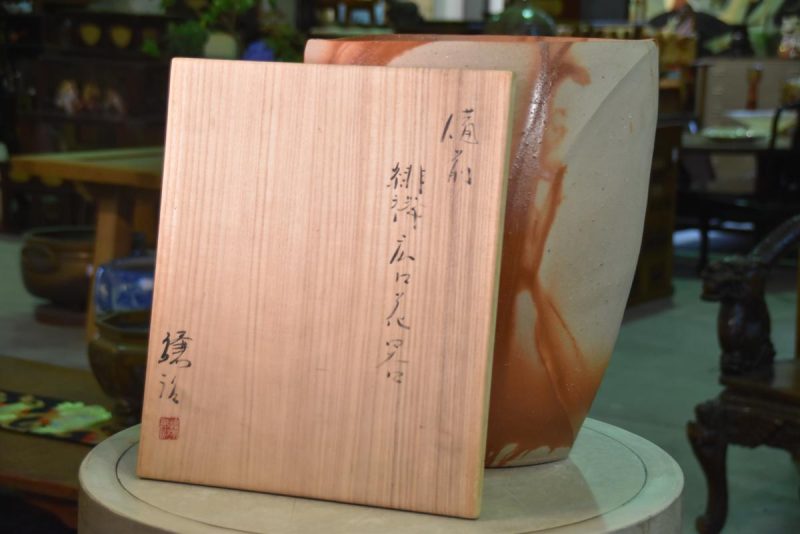 備前
緋襷広口花器